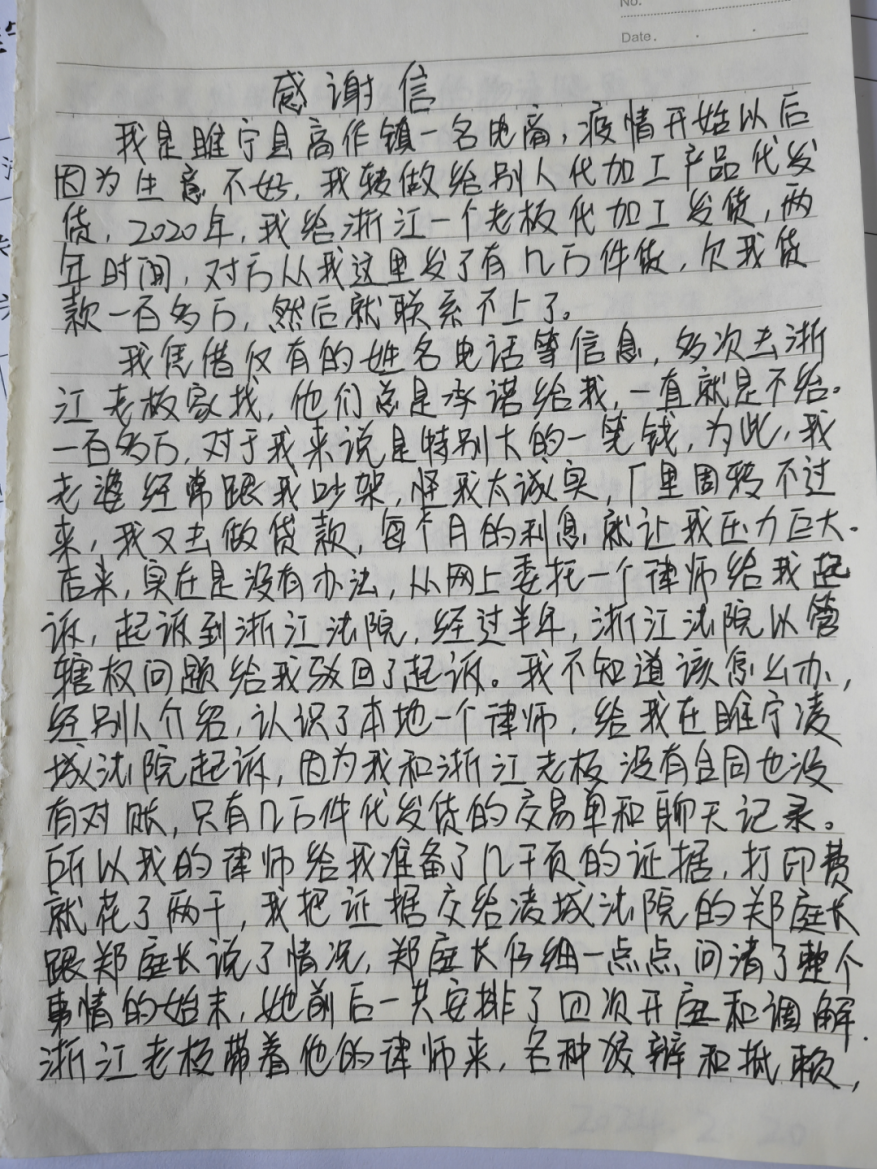 No.
Date.
感谢信
我是睢宁县高作镇一名电商，疫情开始以后
因为生意不好，我转做给别人代加工产品代发
货，2020年，我给浙江一个老板代加工发货，两
年时间，对方从我这里发了有几万件货，欠我货
款一百多万，然后就联系不上了。
我凭借仅有的姓名电话等信息，多次去浙
江老板家找，他们总是承诺给我，一直就是不给。
一百多万，对于我来说是特别大的一笔钱，为此，我
老婆经常跟我吵架，怪我太诚实，厂里周转不过
来，我又去做贷款，每个月的利息就让我压力巨大。
后来，实在是没有办法，从网上委托一个律师给我起
诉，起诉到浙江法院，经过半年，浙江法院以管
辖权问题给我驳回了起诉。我不知道该怎么办，
经别人介绍，认识了本地一个律师，给我在睢宁凌
城法院起诉，因为我和浙江老板没有合同也没
有对账，只有几万件代发货的交易单和聊天记录。
所以我的律师给我准备了几千页的证据，打印费
就花了两千，我把证据交给凌城法院的郑庭长
跟郑庭长说了情况，郑庭长仔细一点点问清了整个
事情的始末，她前后一共安排了四次开庭和调解.
浙江老板带着他的律师来，各种狡辩和抵赖，